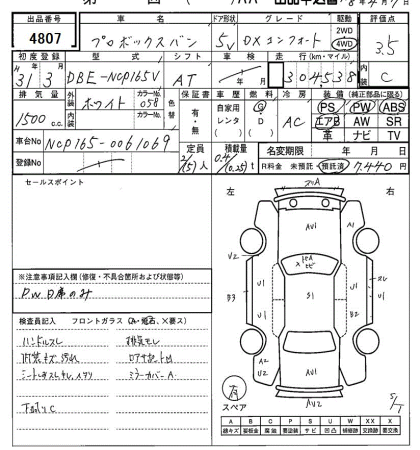 出品番号 車名 ドア形状 グレード 駆動 評価点
4807 プロボックスバン 5V DXコンフォート 2WD 4WD 3.5
初度登録 型式 シフト 車検 走行(km・マイル) 内装
31年3月 DBE-NCP165V AT 年 月 304538 C
排気量 外装 カラーNo. 色替 保証書 車歴 燃料 冷房 装備(純正部品に限る)
1500c.c. ホワイト 058 内装 カラーNo. 有・無 自家用 レンタ ( ) G D ( ) AC PS PW ABS
エアB AW SR
革 ナビ TV
車台No NCP165-0061069 定員 2/(5)人 積載量 0.4/(0.25)t 名変期限 年 月 日
登録No R料金 未預託・預託済 7,440円
セールスポイント 左 右
※注意事項記入欄(修復・不具合箇所および状態等)
P.W D席のみ
検査員記入 フロントガラス(A・飛石、×要ス)
ハンドルスレ
内装キズ汚れ
ミラーカバーA
下廻りC
AU1
A1
U2
B3
U1
S1
U1
U1
U1
B2
A2
U2
AU1
AU2
有
スペア
5/1
A B C P S U W XX X
線キズ 要板金 腐蝕 要塗装 サビ 凹凸 補修跡 交換跡 要交換